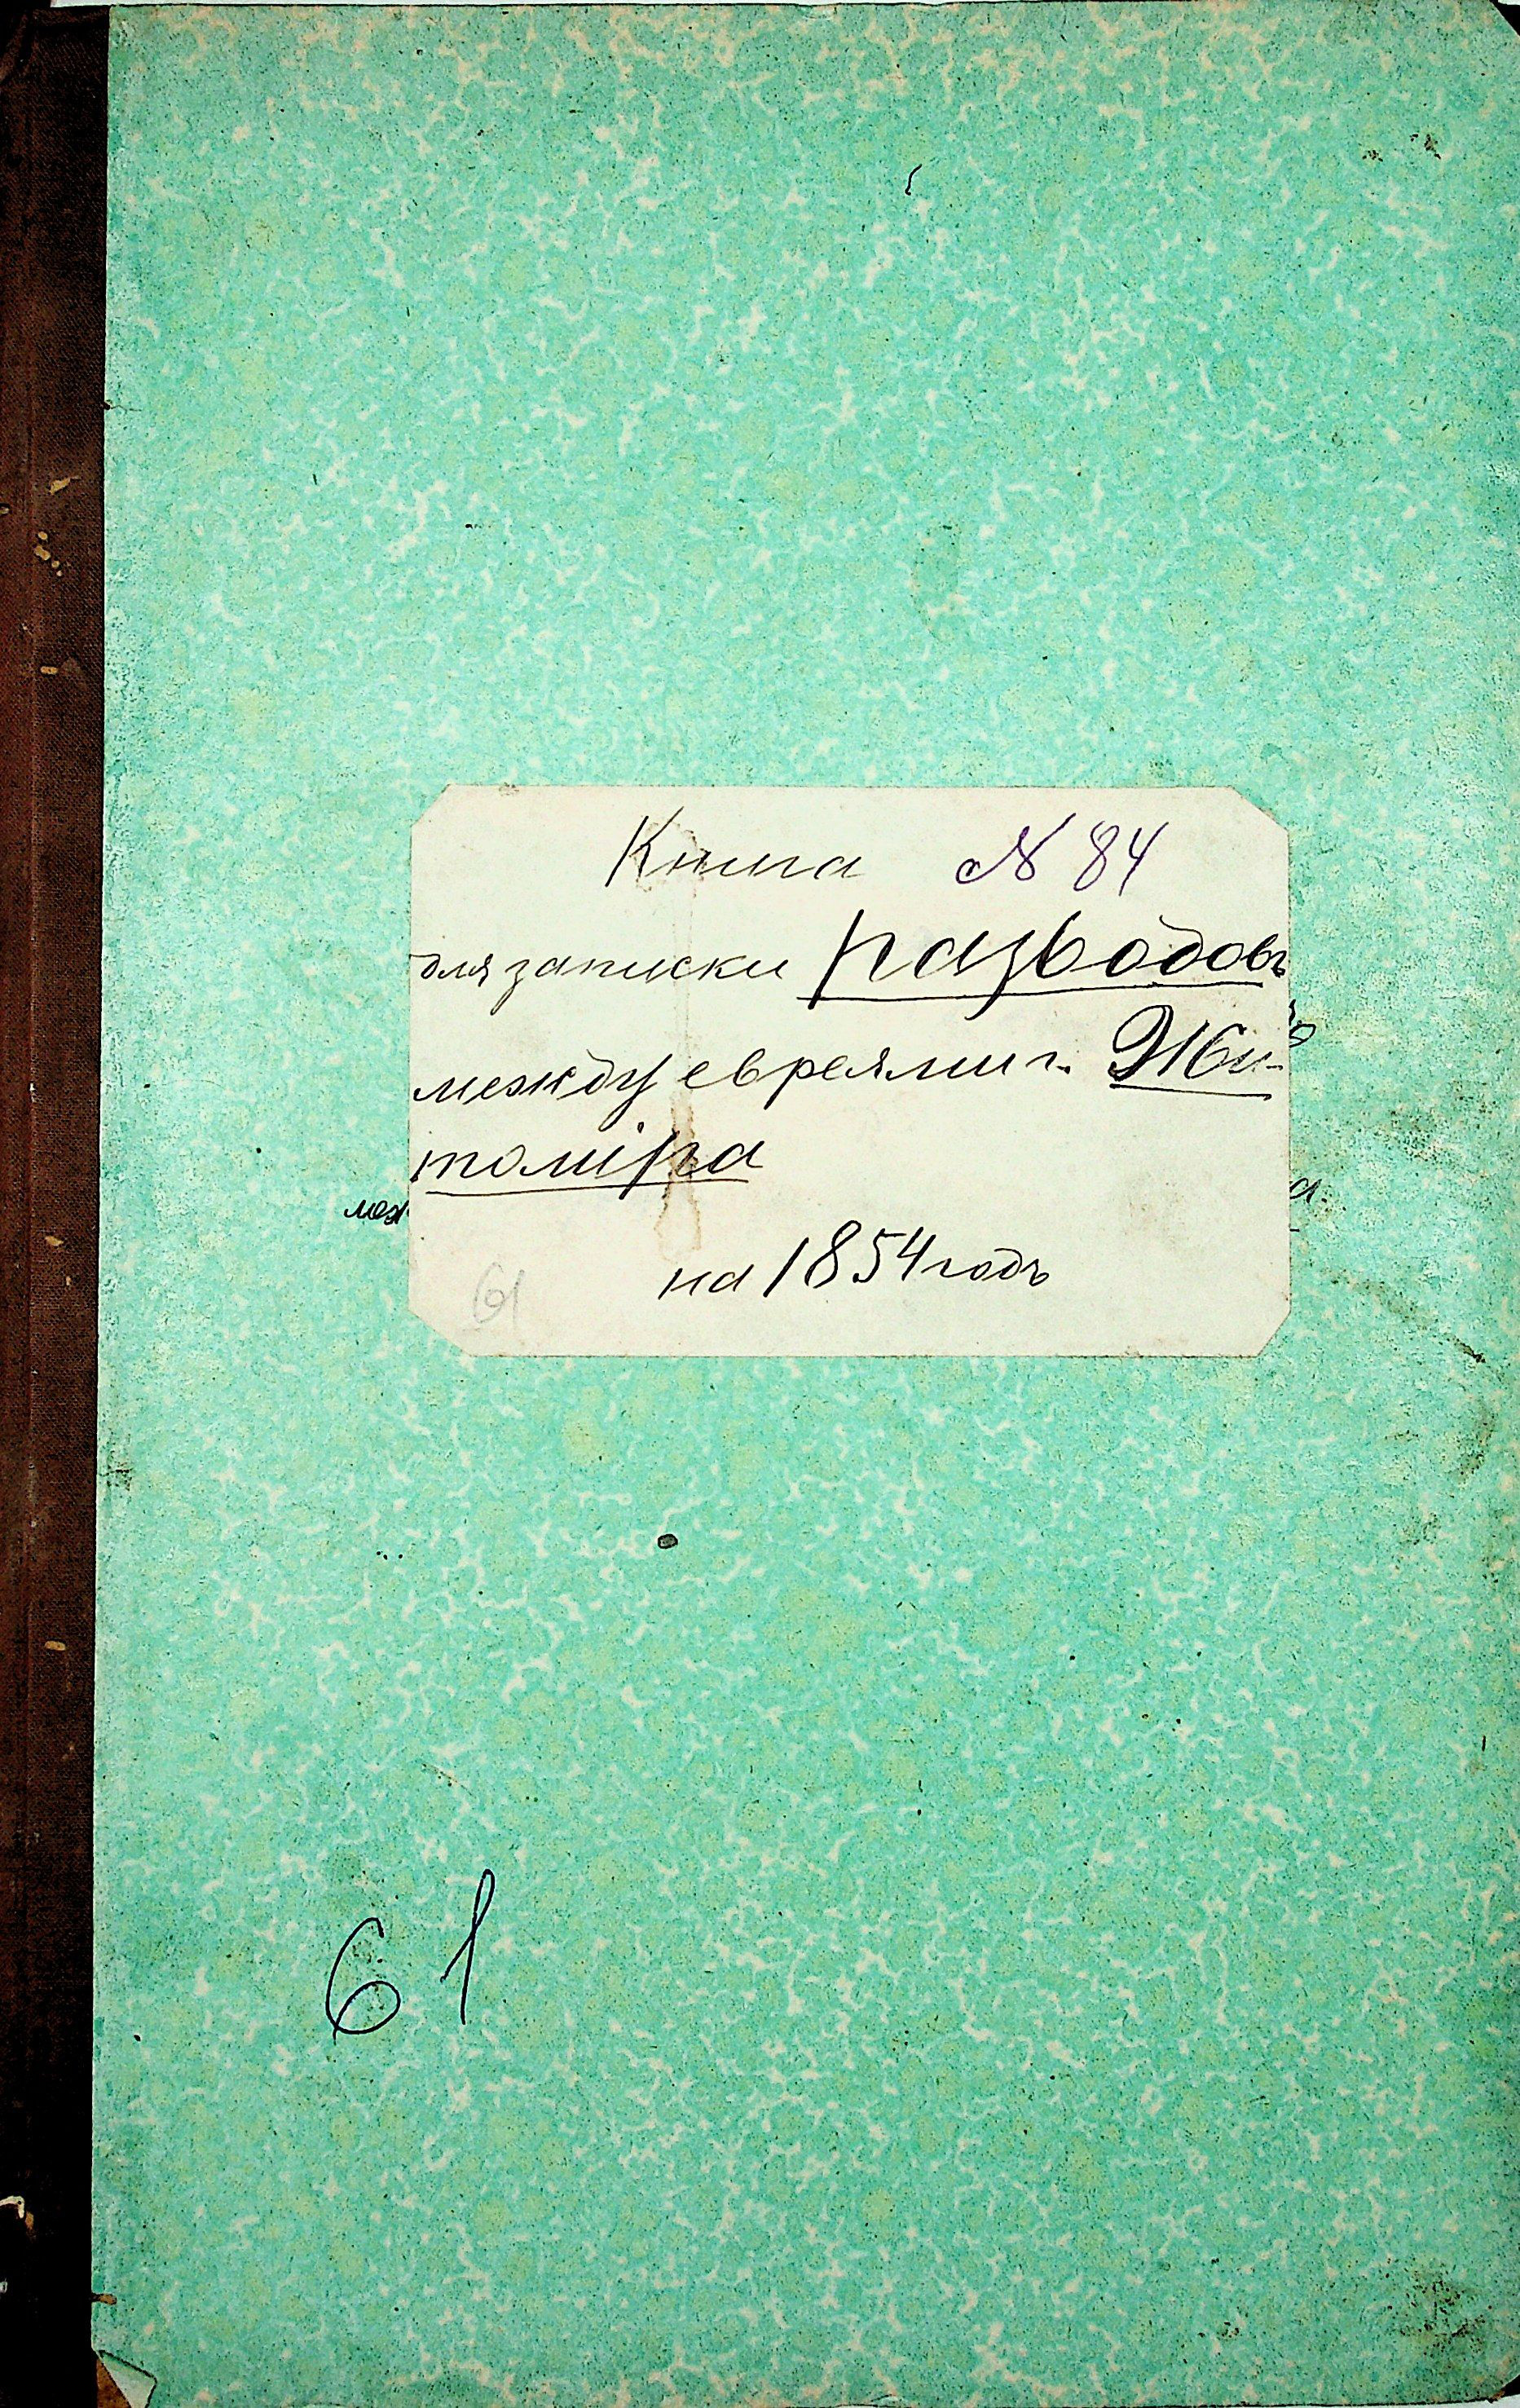 Книга № 84
для записки разводовъ
между евреями г. Жи-
томіра
меж
а.
на 1854 годъ
61
61